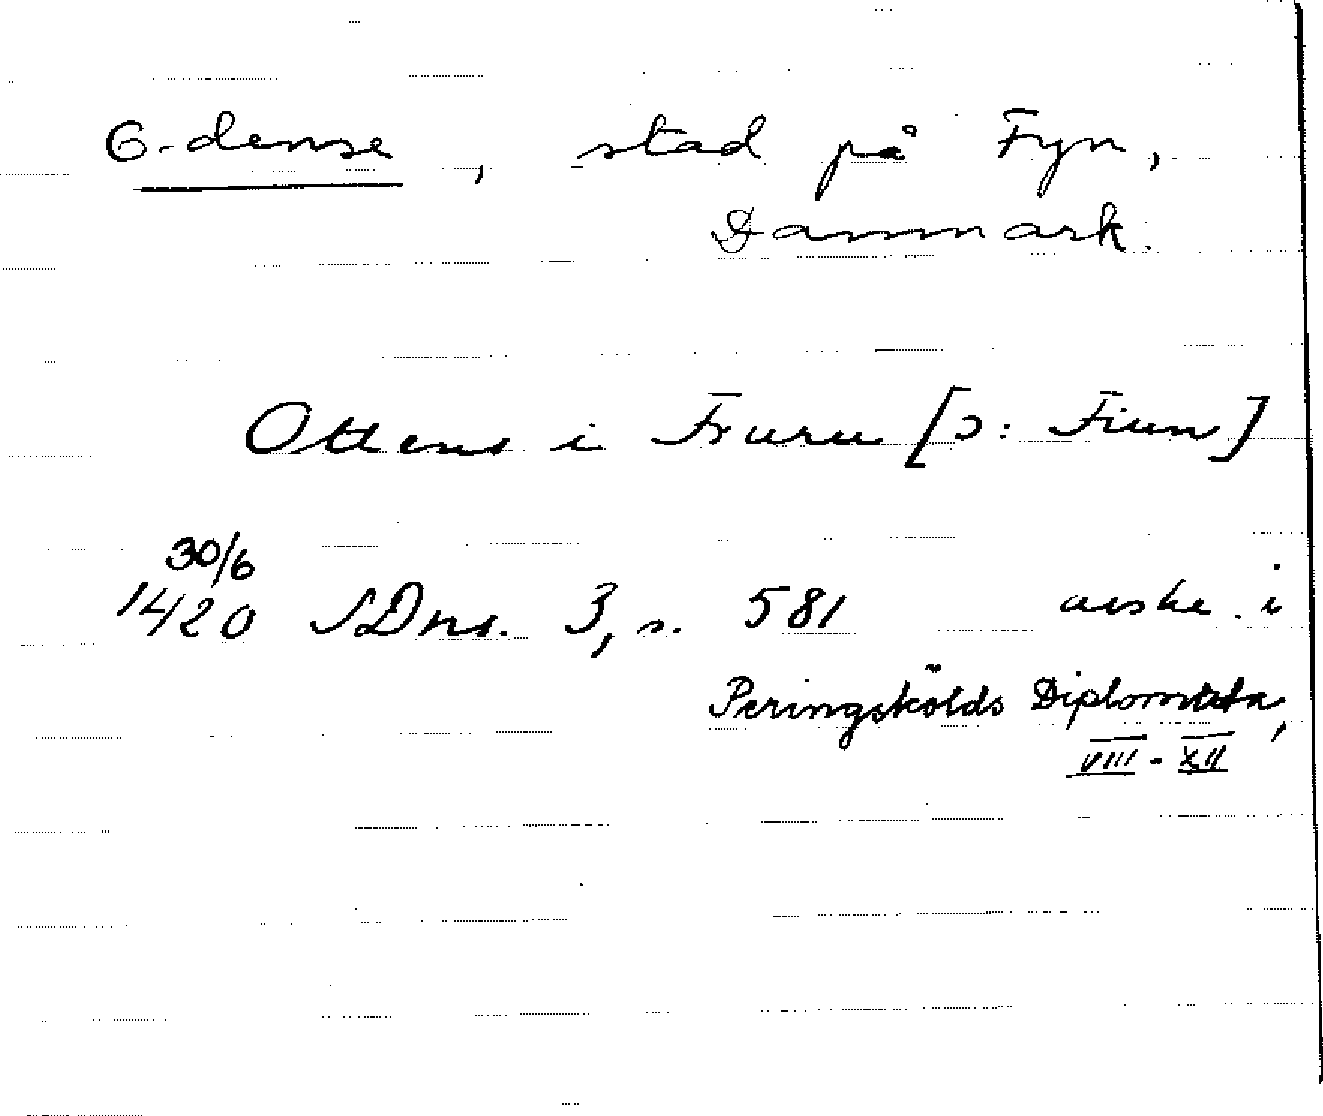 O-dense, stad på Fyn,
Danmark.
Ottens i Fruru [ɔ: Fiun]
30/6
1420 SDns. 3, s. 581 avskr. i
Peringskölds Diplomata,
VIII - XII